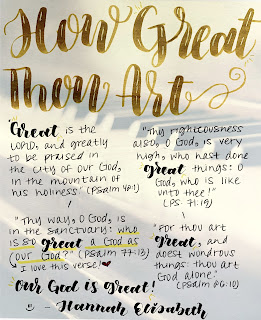 How Great
Thou Art
"Great is the
LORD, and greatly
to be praised in
the city of our God,
in the mountain of
his holiness." (Psalm 48:1)
"Thy way, O God, is
in the sanctuary: who
is so great a God as
our God?" (Psalm 77:13)
I love this verse! ♥
"Thy righteousness
also, O God, is very
high, who hast done
great things: O
God, who is like
unto thee!"
(Ps. 71:19)
"For thou art
great, and
doest wondrous
things: thou art
God alone."
(Psalm 86:10)
Our God is Great!
Hannah Elisabeth